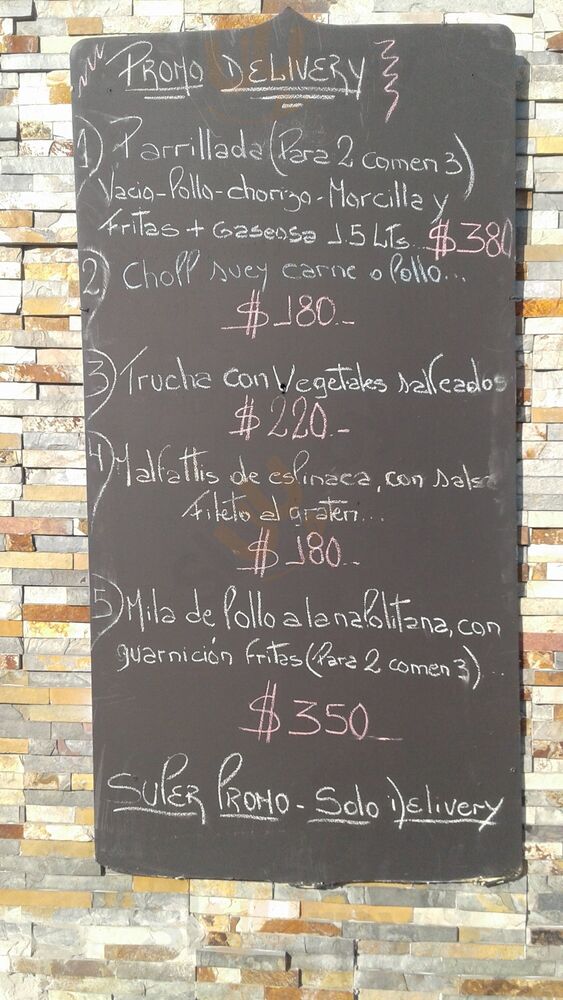 PROMO DELIVERY
1) Parrillada (Para 2 comen 3)
Vacio-Pollo-chorizo-Morcilla y
Fritas + Gaseosa 1.5 Lts... $380
2) Choll suey carne o Pollo...
$180.-
3) Trucha con Vegetales salteados
$220.-
4) Malfattis de espinaca, con salsa
fileto al graten...
$180.-
5) Mila de Pollo a la napolitana, con
guarnición fritas (Para 2 comen 3)..
$350
SUPER PROMO - Solo Delivery